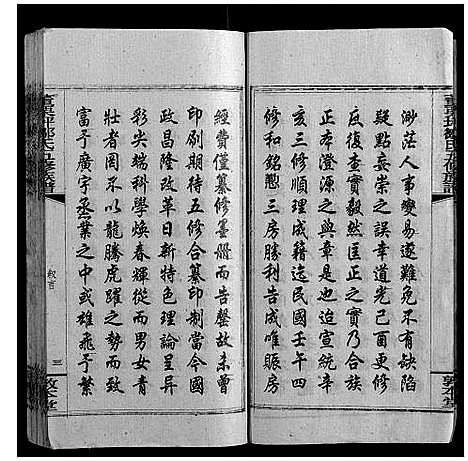 渺茫人事變易遂難免不有缺陷
疑點妄崇之誤幸道光己酉更修
反復查實毅然匡正之實乃合族
正本澄源之與章是也迨宣統辛
亥三修順理成籍迄民國壬午四
修和銘懃三房勝利告成唯賑房
經費僅纂修墨册而告罄故未曾
印刷期待五修合纂印制當今國
政昌隆改革日新特色理論呈昇
彩尖端科學煥春輝從而男女青
壯者罔不以龍騰虎躍之勢而致
富于廣宇丞業之中或雄飛于繁
叙言
三
敦本堂